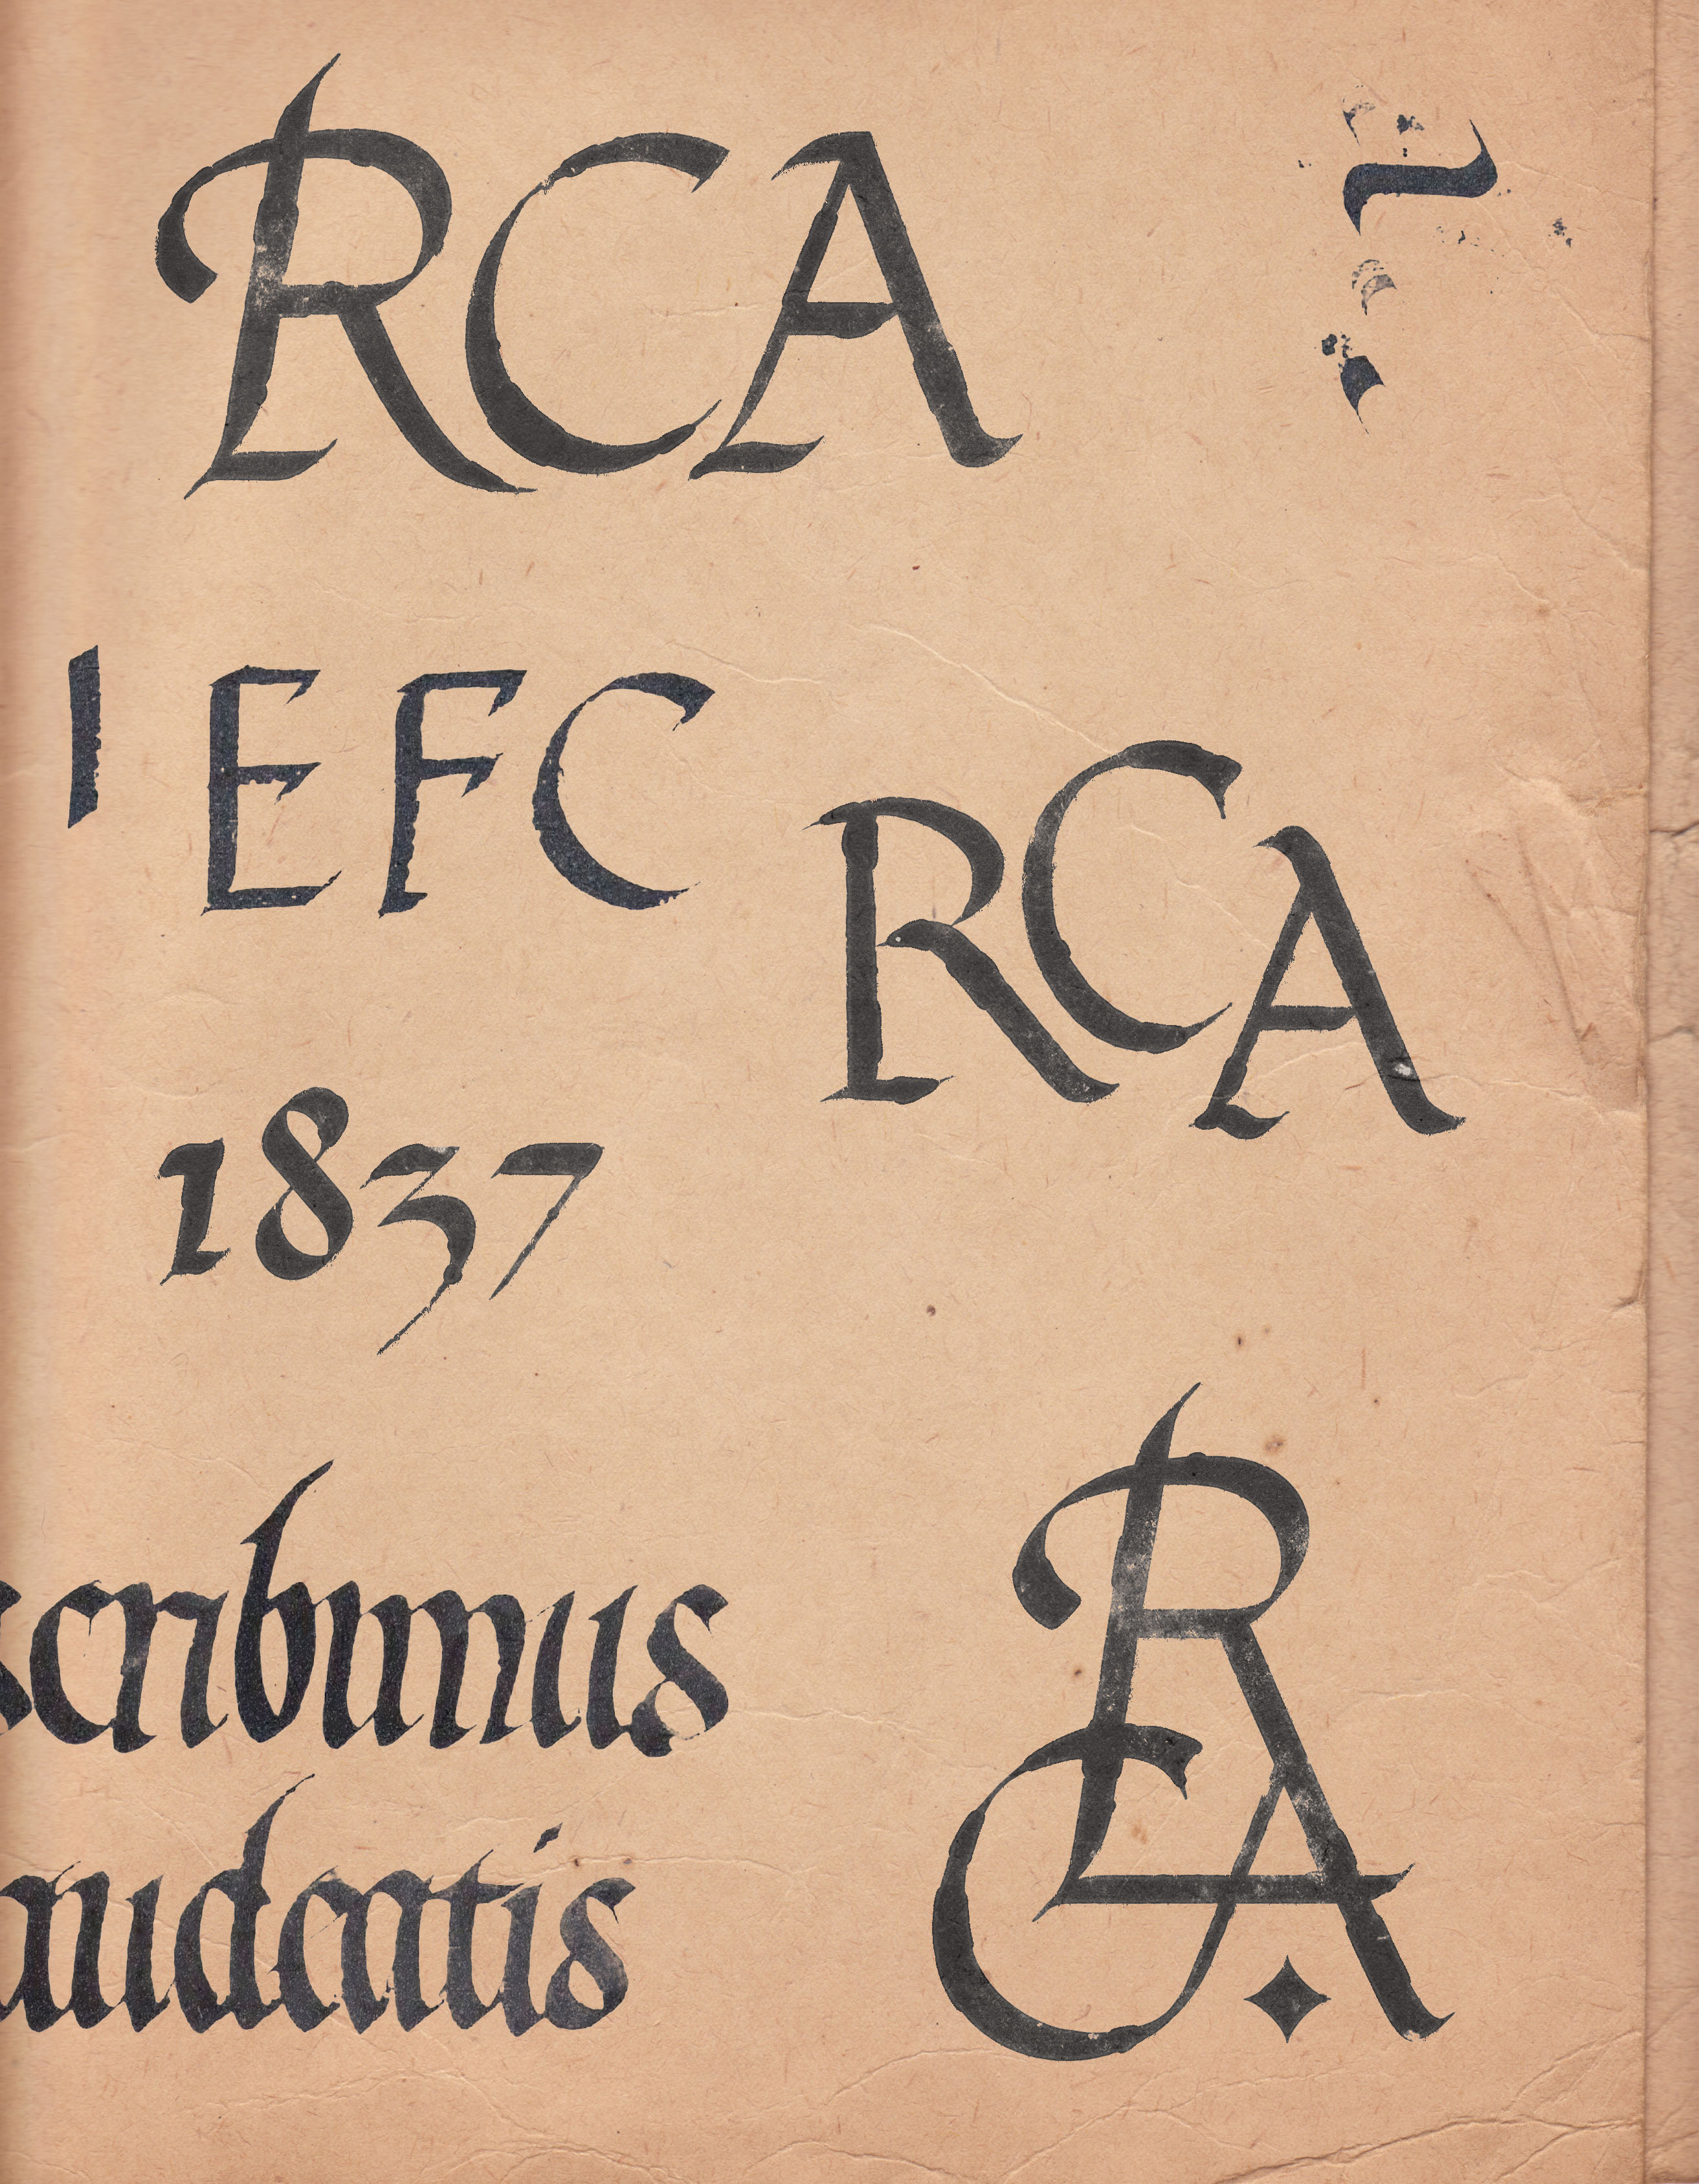 RCA
I EFC
RCA
1837
scribimus
audeatis
RCA